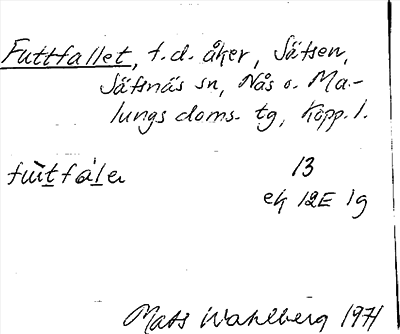 Futtfallet, f.d. åker, Sätsen,
Säfsnäs sn, Nås o. Ma-
lungs doms. tg, Kopp. l.
13
ek 12E 1g
Mats Wahlberg 1971